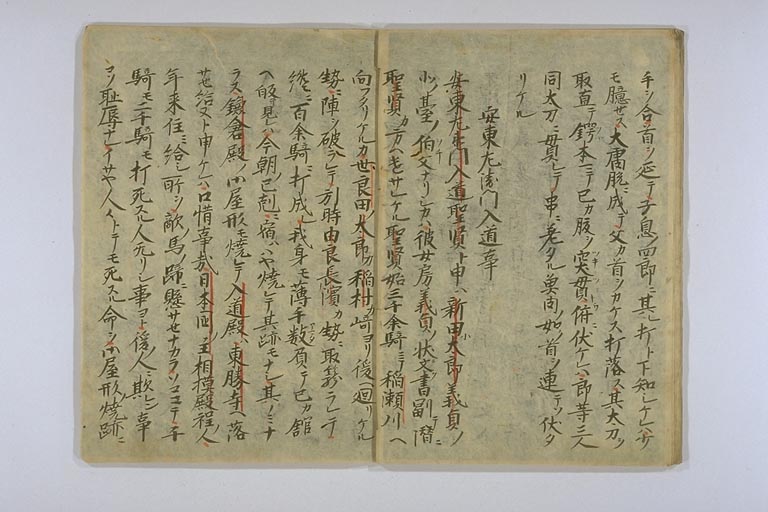 手ヲ合首ヲ延テ子息ノ四郎ニ其レ打ト下知シケレハ
モ臆セス大膚脱ニ成テ父カ首ヲカケス打落ス其太刀ヲ
取直テ鐔本ニテ己カ腹ヲ突貫俯伏ケレハ郎等三人
同太刀ニ貫レテ串ニ差タル魚肉ノ如首ヲ連テソ伏タ
リケル
安東左衛門入道事
安東左衛門入道聖賢ト申ハ新田太郎義貞ノ
北ノ臺ノ伯父ナリシカハ彼女房義貞ノ状文書副偸ニ
聖賢カ方ヘ遣サレケル聖賢始三千余騎ニテ稲瀬川ヘ
向フリケルカ世良田太郎カ稲村崎ヨリ後ヘ廻リケル
勢ニ陣ヲ破ラレテ引時由良長濱カ勢ニ取籠ラレテ
纔ニ百余騎ニ打成レ我身モ薄手数負テ己カ館
ヘ皈見レハ今朝巳剋ニ宿ハハヤ焼テ其跡モナシ其ノミナ
ラス鎌倉殿ノ御屋形モ焼テ入道殿ハ東勝寺ヘ落
サセ給ヌト申ケレハ口惜事哉日本一国ノ主相摸殿程ノ人ノ
年来住ニ給シ所ヲ敵ノ馬ノ蹄ニ懸サセナカラソココニテ千
騎モ二千騎モ打死スル人无リシ事ヨト後人ニ欺レン事
コソ耻辱ナレイサヤ人々トテモ死スル命ヲ御屋形ノ焼跡ニ